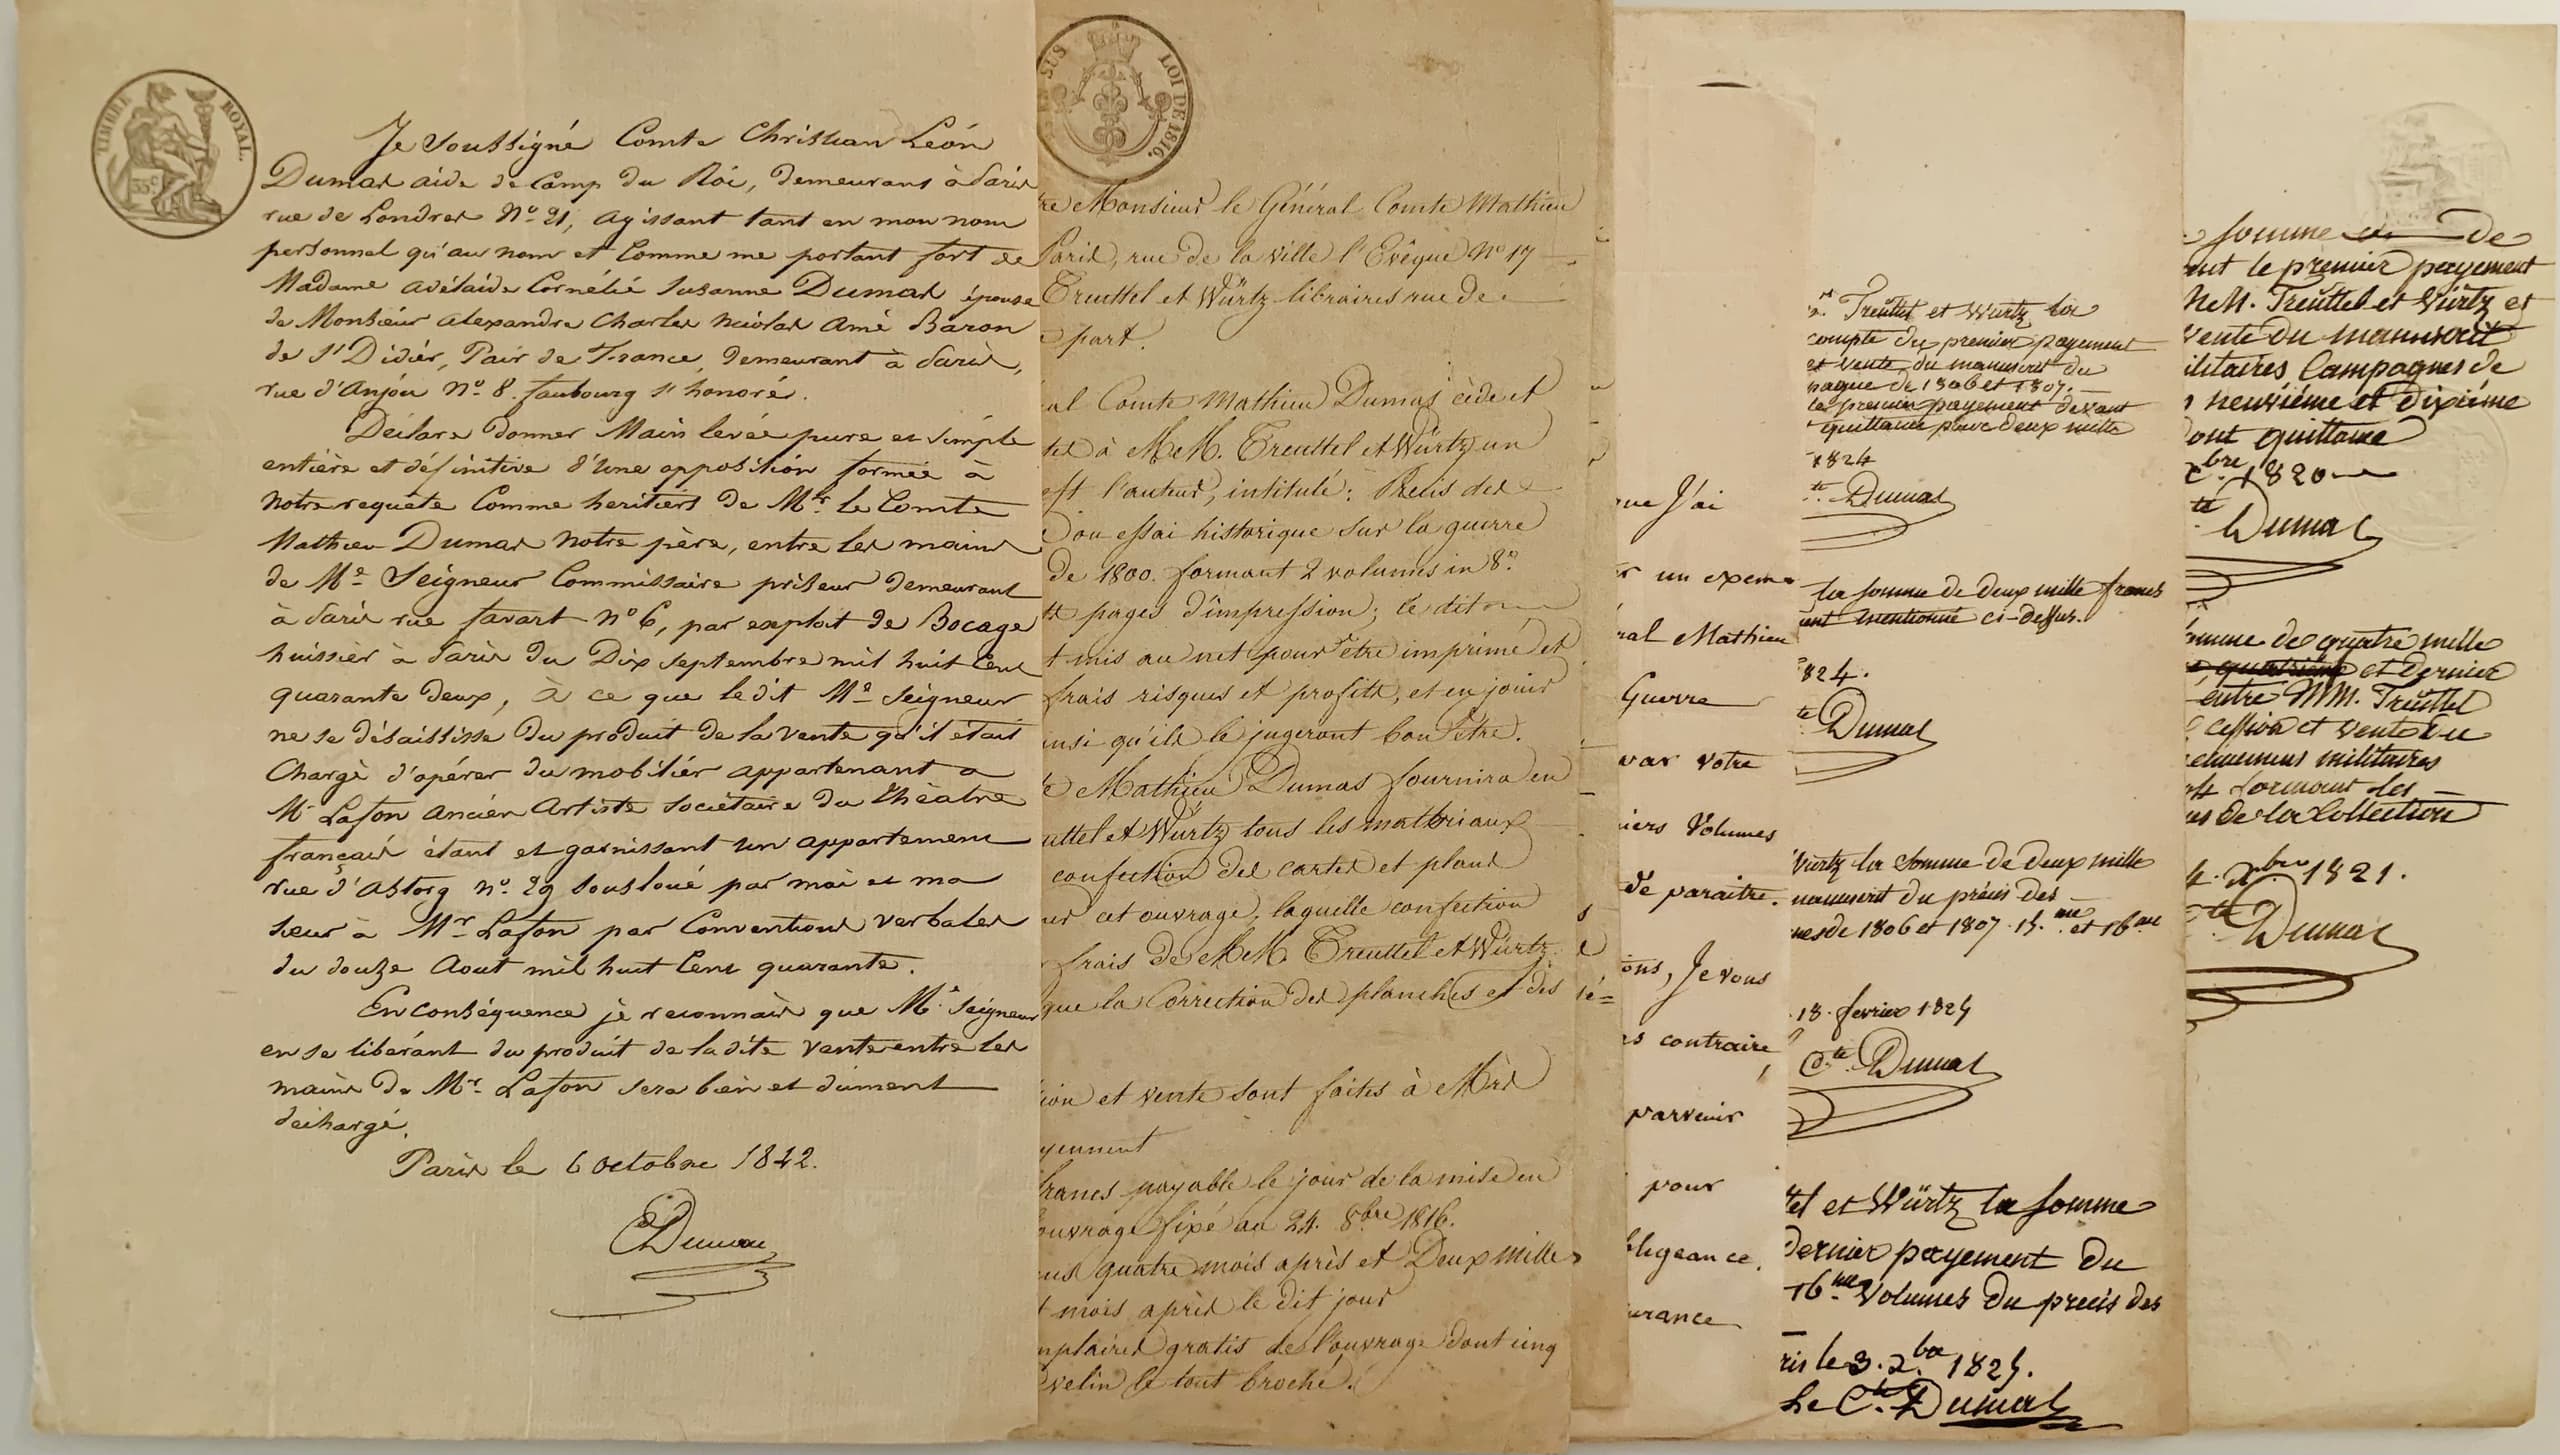 TIMBRE ROYAL.
35c
Je soussigné Comte Christian Léon
Dumas aide de Camp du Roi, demeurant à Paris
rue de Londres No. 21, agissant tant en mon nom
personnel qu'au nom et Comme me portant fort de
Madame adélaïde Cornélie Susanne Dumas épouse
de Monsieur alexandre Charles Nicolas Amé Baron
de St Didier, Pair de France, demeurant à Paris,
rue d'Anjou No. 8. faubourg St honoré.
Déclare donner Main levée pure et simple
entière et définitive d'une opposition formée à
notre requête Comme heritiers de Mr. le Comte
Mathieu Dumas notre père, entre les mains
de Me. Seigneur Commissaire priseur demeurant
à Paris rue favart No 6, par exploit de Bocage
huissier à Paris du Dix septembre mil huit Cent
quarante deux, à ce que le dit Me. Seigneur
ne se désaisisse du produit de la vente qu'il était
Chargé d'opérer du mobilier appartenant a
Mr Lafon ancien artiste sociétaire du théatre
français étant et garnissant un appartement
rue d'Astorg No. 29 sousloué par moi et ma
sœur à Mr. Lafon par Conventions verbales
du douze Aout mil huit Cent quarante.
En conséquence je reconnais que Me. Seigneur
en se libérant du produit de la dite vente entre les
mains de Mr. Lafon sera bien et dûment
déchargé.
Paris le 6 octobre 1842.
CDumas
SUS
LOI DE 1816.
tre Monsieur le Général Comte Mathieu
Paris, rue de la ville l'Evêque No 17
Treuttel et Würtz libraires rue de
e part.
al Comte Mathieu Dumas cède et
tes à MM. Treuttel et Würtz un
est l'auteur, intitulé: Précis des
ou essai historique sur la guerre
de 1800. formant 2 volumes in 8o.
pages d'impression; le dit
t mis au net pour être imprimé et
frais risques et profits, et en jouir
insi qu'ils le jugeront bon être.
e Mathieu Dumas fournira en
uttel et Würtz tous les matériaux
confection des cartes et plans
ur cet ouvrage, laquelle confection
frais de MM. Treuttel et Würtz
que la Correction des planches et des
ion et vente sont faites à
yement
francs payable le jour de la mise en
ouvrage fixé au 24. 8bre 1816.
us quatre mois après et Deux mille
t mois après le dit jour
mplaires gratis de l'ouvrage dont cinq
velin le tout broché.
que J'ai
r un exem
ral Mathieu
Guerre
par votre
iers Volumes
de paraitre.
ons, Je vous
s contraire,
parvenir
pour
bligeance.
urance
Treüttel et Würtz la
compte du premier payement
et vente du manuscrit du
pagne de 1806 et 1807.
le premier payement devant
quittance pour deux mille
1824
te Dumas
la somme de deux mille francs
ent mentionné ci-dessus.
824.
te Dumas
Würtz la somme de deux mille
manuscrit du précis des
nes de 1806 et 1807. 15.me et 16me
18. fevrier 1825
Cte. Dumas
tel et Würtz la somme
dernier payement du
16.me Volumes du precis des
ris le 3. 2.bre 1825.
Le Cte. Dumas
somme de
ant le premier payement
MM. Treüttel et Würtz et
vente du manuscrit
ilitaires Campagnes de
neuvième et dixième
dont quittance
bre 1820
te Dumas
omme de quatre mille
quatrième et dernier
entre MM. Treüttel
cession et vente du
enemens militaires
formant les
es de la Collection
bre 1821.
te Dumas